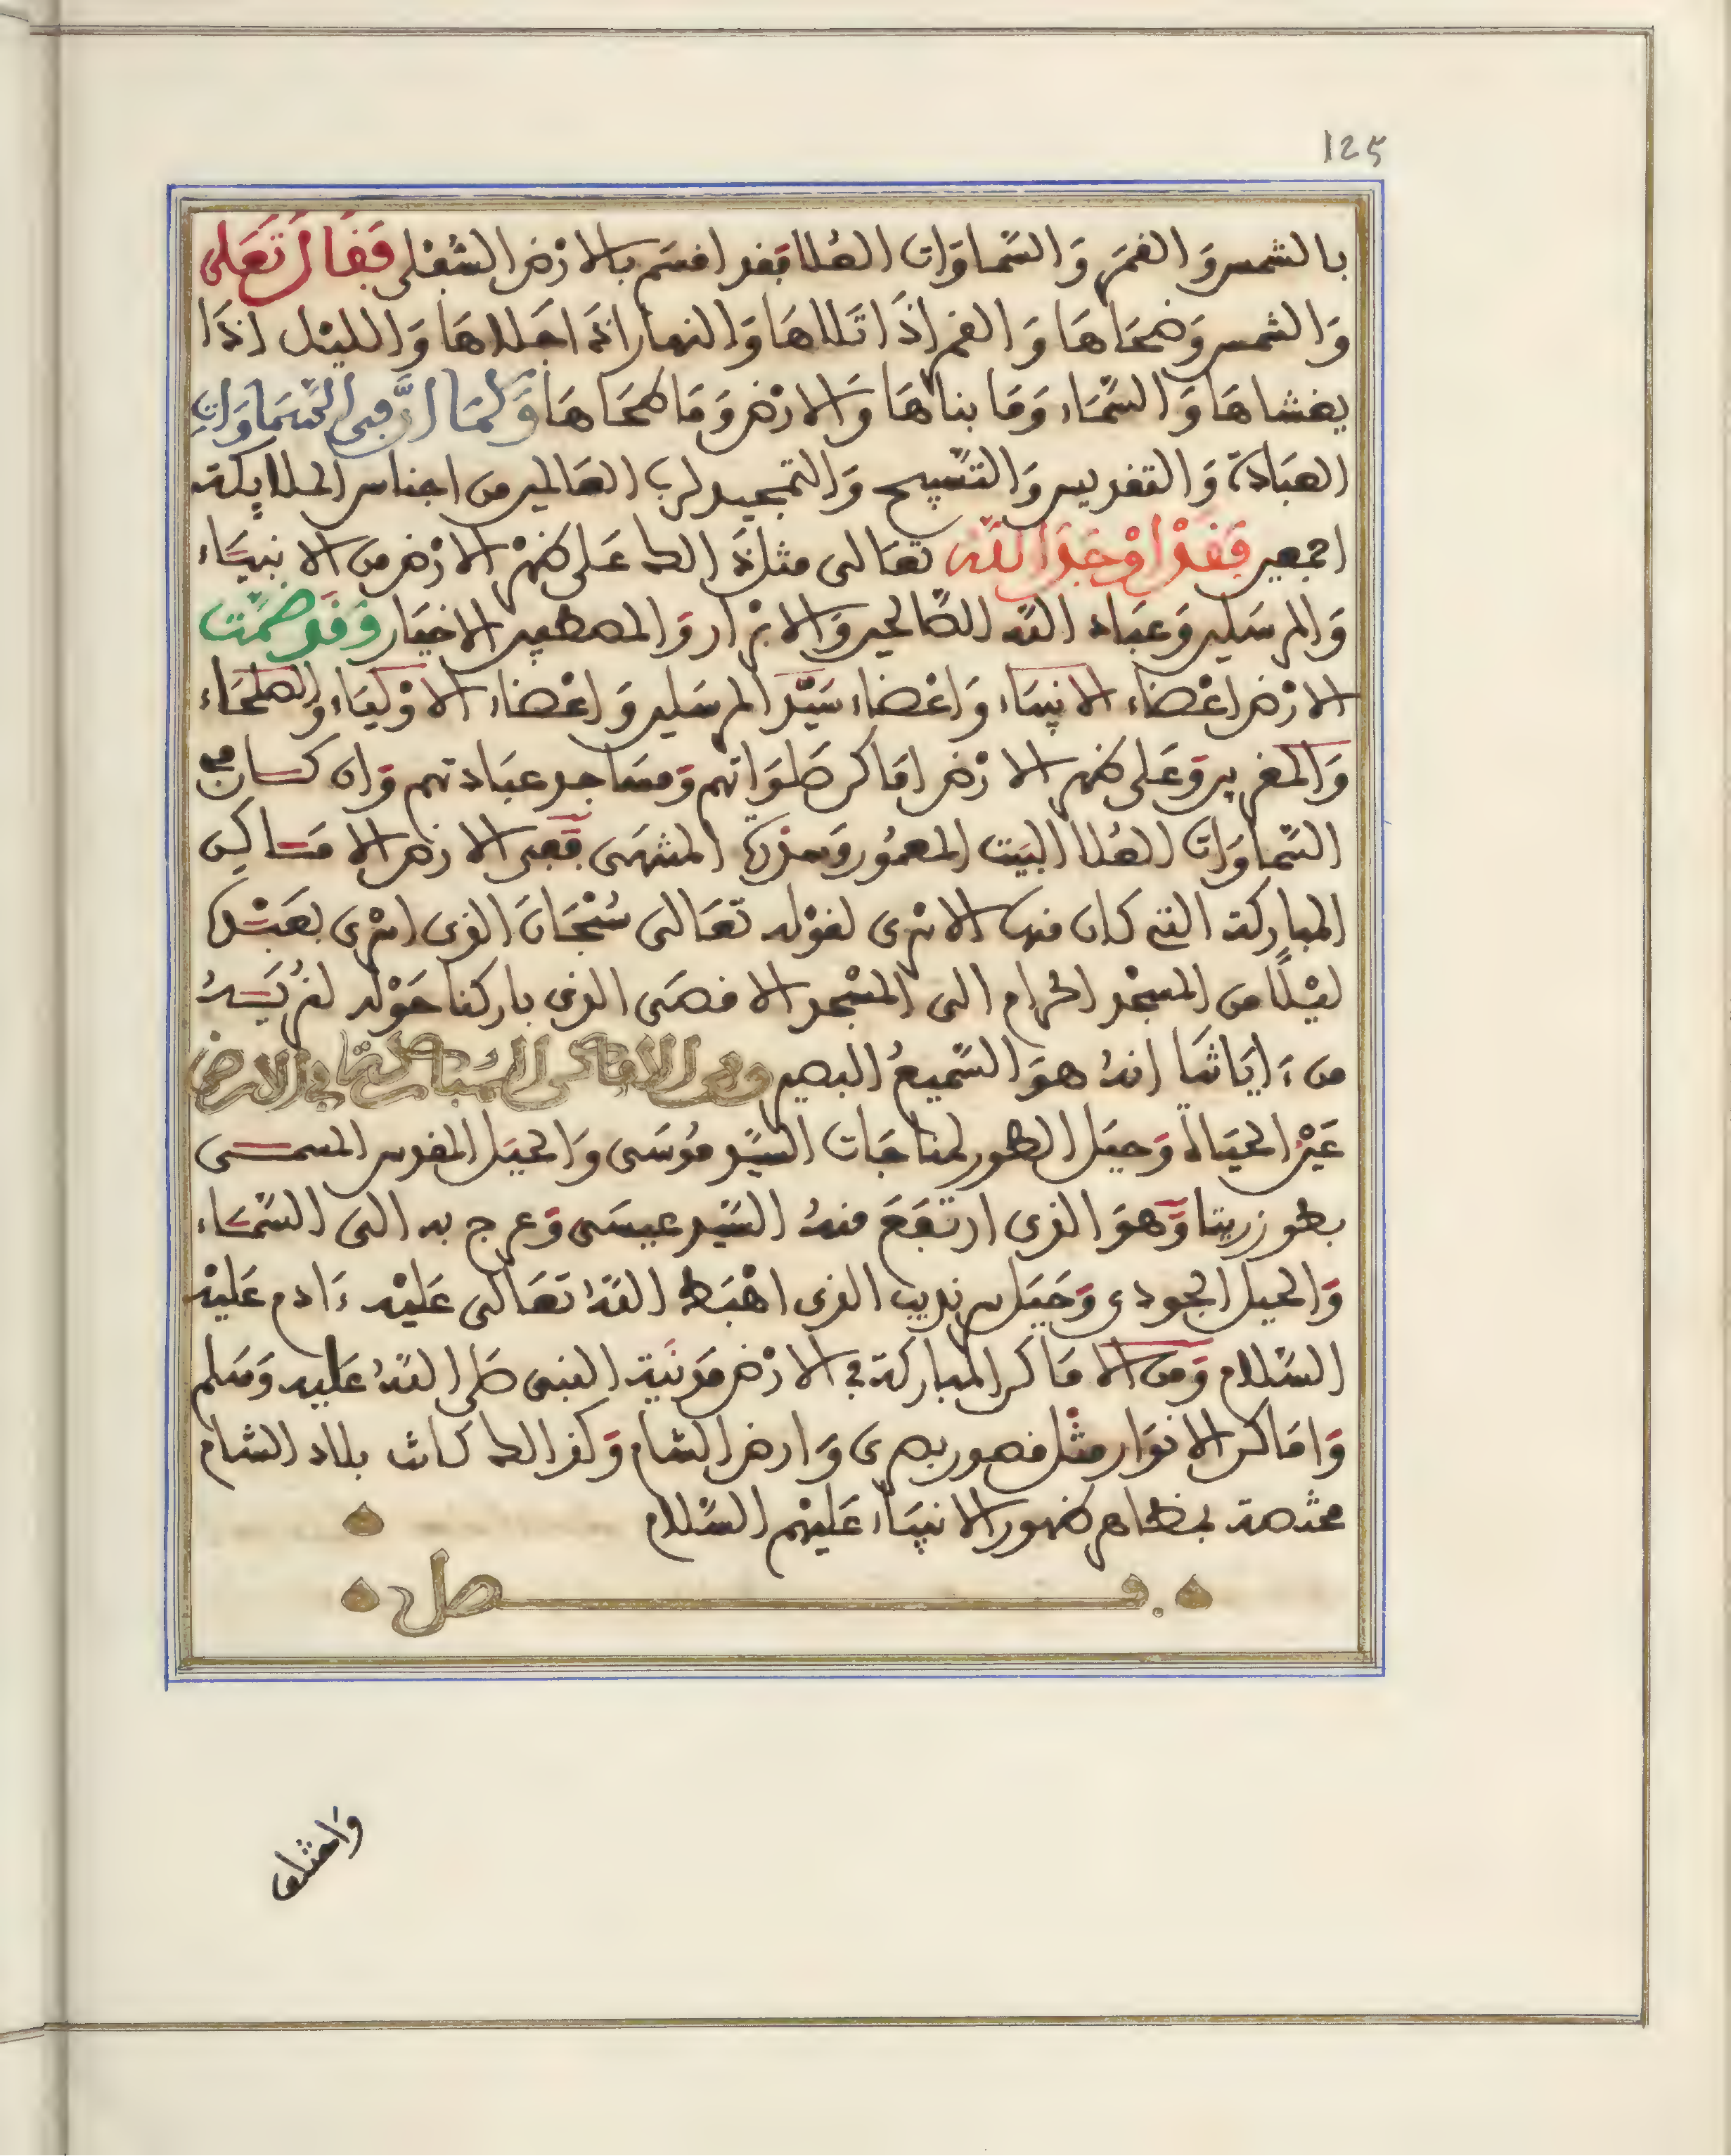 125
بالشمس وَالقمَر وَالسَّماوَات العُلا فقد اقسَم بالارْض السُّفْلى فَقَالَ تَعَلى
وَالشمس وَضحَاهَا وَالقمر اذَا تَلاهَا وَالنهار اذَا جَلاهَا وَالليْل اذَا
يغشاهَا وَالسَّمَاء وَمَا بناهَا وَالارْض وَمَا طحَاهَا وَكمَا انَّ في السَّمَاوَاتِ
العبَادَة وَالتقديس وَالتسْبيح وَالتمجيد لرب العَالمين من اجناس الملايكة
اجمعين فَقَدْ اوْجَدَ اللَّه تعَالى مثل ذَالك عَلى ظهْر الارْض من الانبيَاء
وَالمرسَلين وَعبَاد اللَّه الصَّالحين وَالابْرَار وَالمصطفين الاخيَار وَقَد ضمَّت
الارْض اعْضاء الانبيَاء وَاعْضاء سَيّد المرسَلين وَاعْضاء الاوْليَاء وَالصلحَاء
وَالمقربين وَعَلى ظهر الارْض امَاكن صَلوَاتهم وَمسَاجد عبَادتهم وَان كان في
السَّماوَات العُلا البَيت المعمُور وَسدْرَة المنتهَى فَفى الارْض الامَاكن
المباركة التي كان منها الاسْرى لقوْله تعَالى سُبْحَانَ الذى اسْرى بعَبْدِه
ليْلًا من المسْجد الحرَام الى المسْجد الاقصَى الذى باركنا حَوْله لنُريَهُ
من ءَايَاتنَا انهُ هوَ السَّميعُ البصير ومن الاماكن المباركة في الارض
عَيْن الحيَاة وَجبَل الطور لمناجَات السَّيد مُوسَى وَالجبَل المقدس المسمى
بطور زريتا وَهوَ الذى ارتفَعَ منهُ السَّيد عيسَى وَعرج به الى السَّمَاء
وَالجبل الجودى وَجَبَل سرنديب الذى اهْبَط اللَّهُ تعَالى عَليْه ءَادم عَليْه
السَّلام وَمن الامَاكن المباركة في الارْض مَدينَة النبى صَلى اللَّهُ عَليه وَسَلم
وَامَاكن الانوَار مثْل قصور بصرى وَارض الشام وَكذالك كانت بلاد الشام
مختصة بظاهر ظهور الانبيَاء عَليْهم السَّلام
فصل
وَامثلى